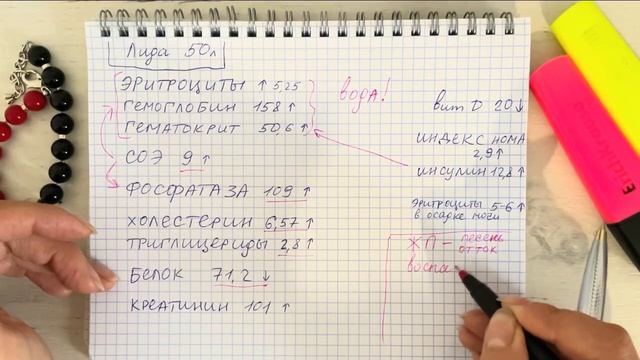 Лида 50л
ЭРИТРОЦИТЫ ↑ 5,25
ГЕМОГЛОБИН 158 ↑
ГЕМАТОКРИТ 50,6 ↑
вода!
СОЭ 9 ↑
ФОСФАТАЗА 109 ↑
ХОЛЕСТЕРИН 6,57 ↑
ТРИГЛИЦЕРИДЫ 2,8 ↑
БЕЛОК 71,2 ↓
КРЕАТИНИН 101 ↑
вит D 20 ↓
ИНДЕКС НОМА
2,9 ↑
ИНСУЛИН 12,8 ↑
ЭРИТРОЦИТЫ 5-6 ↑
в осадке мочи
ЖП – печень
отток
воспа
ErichKrause